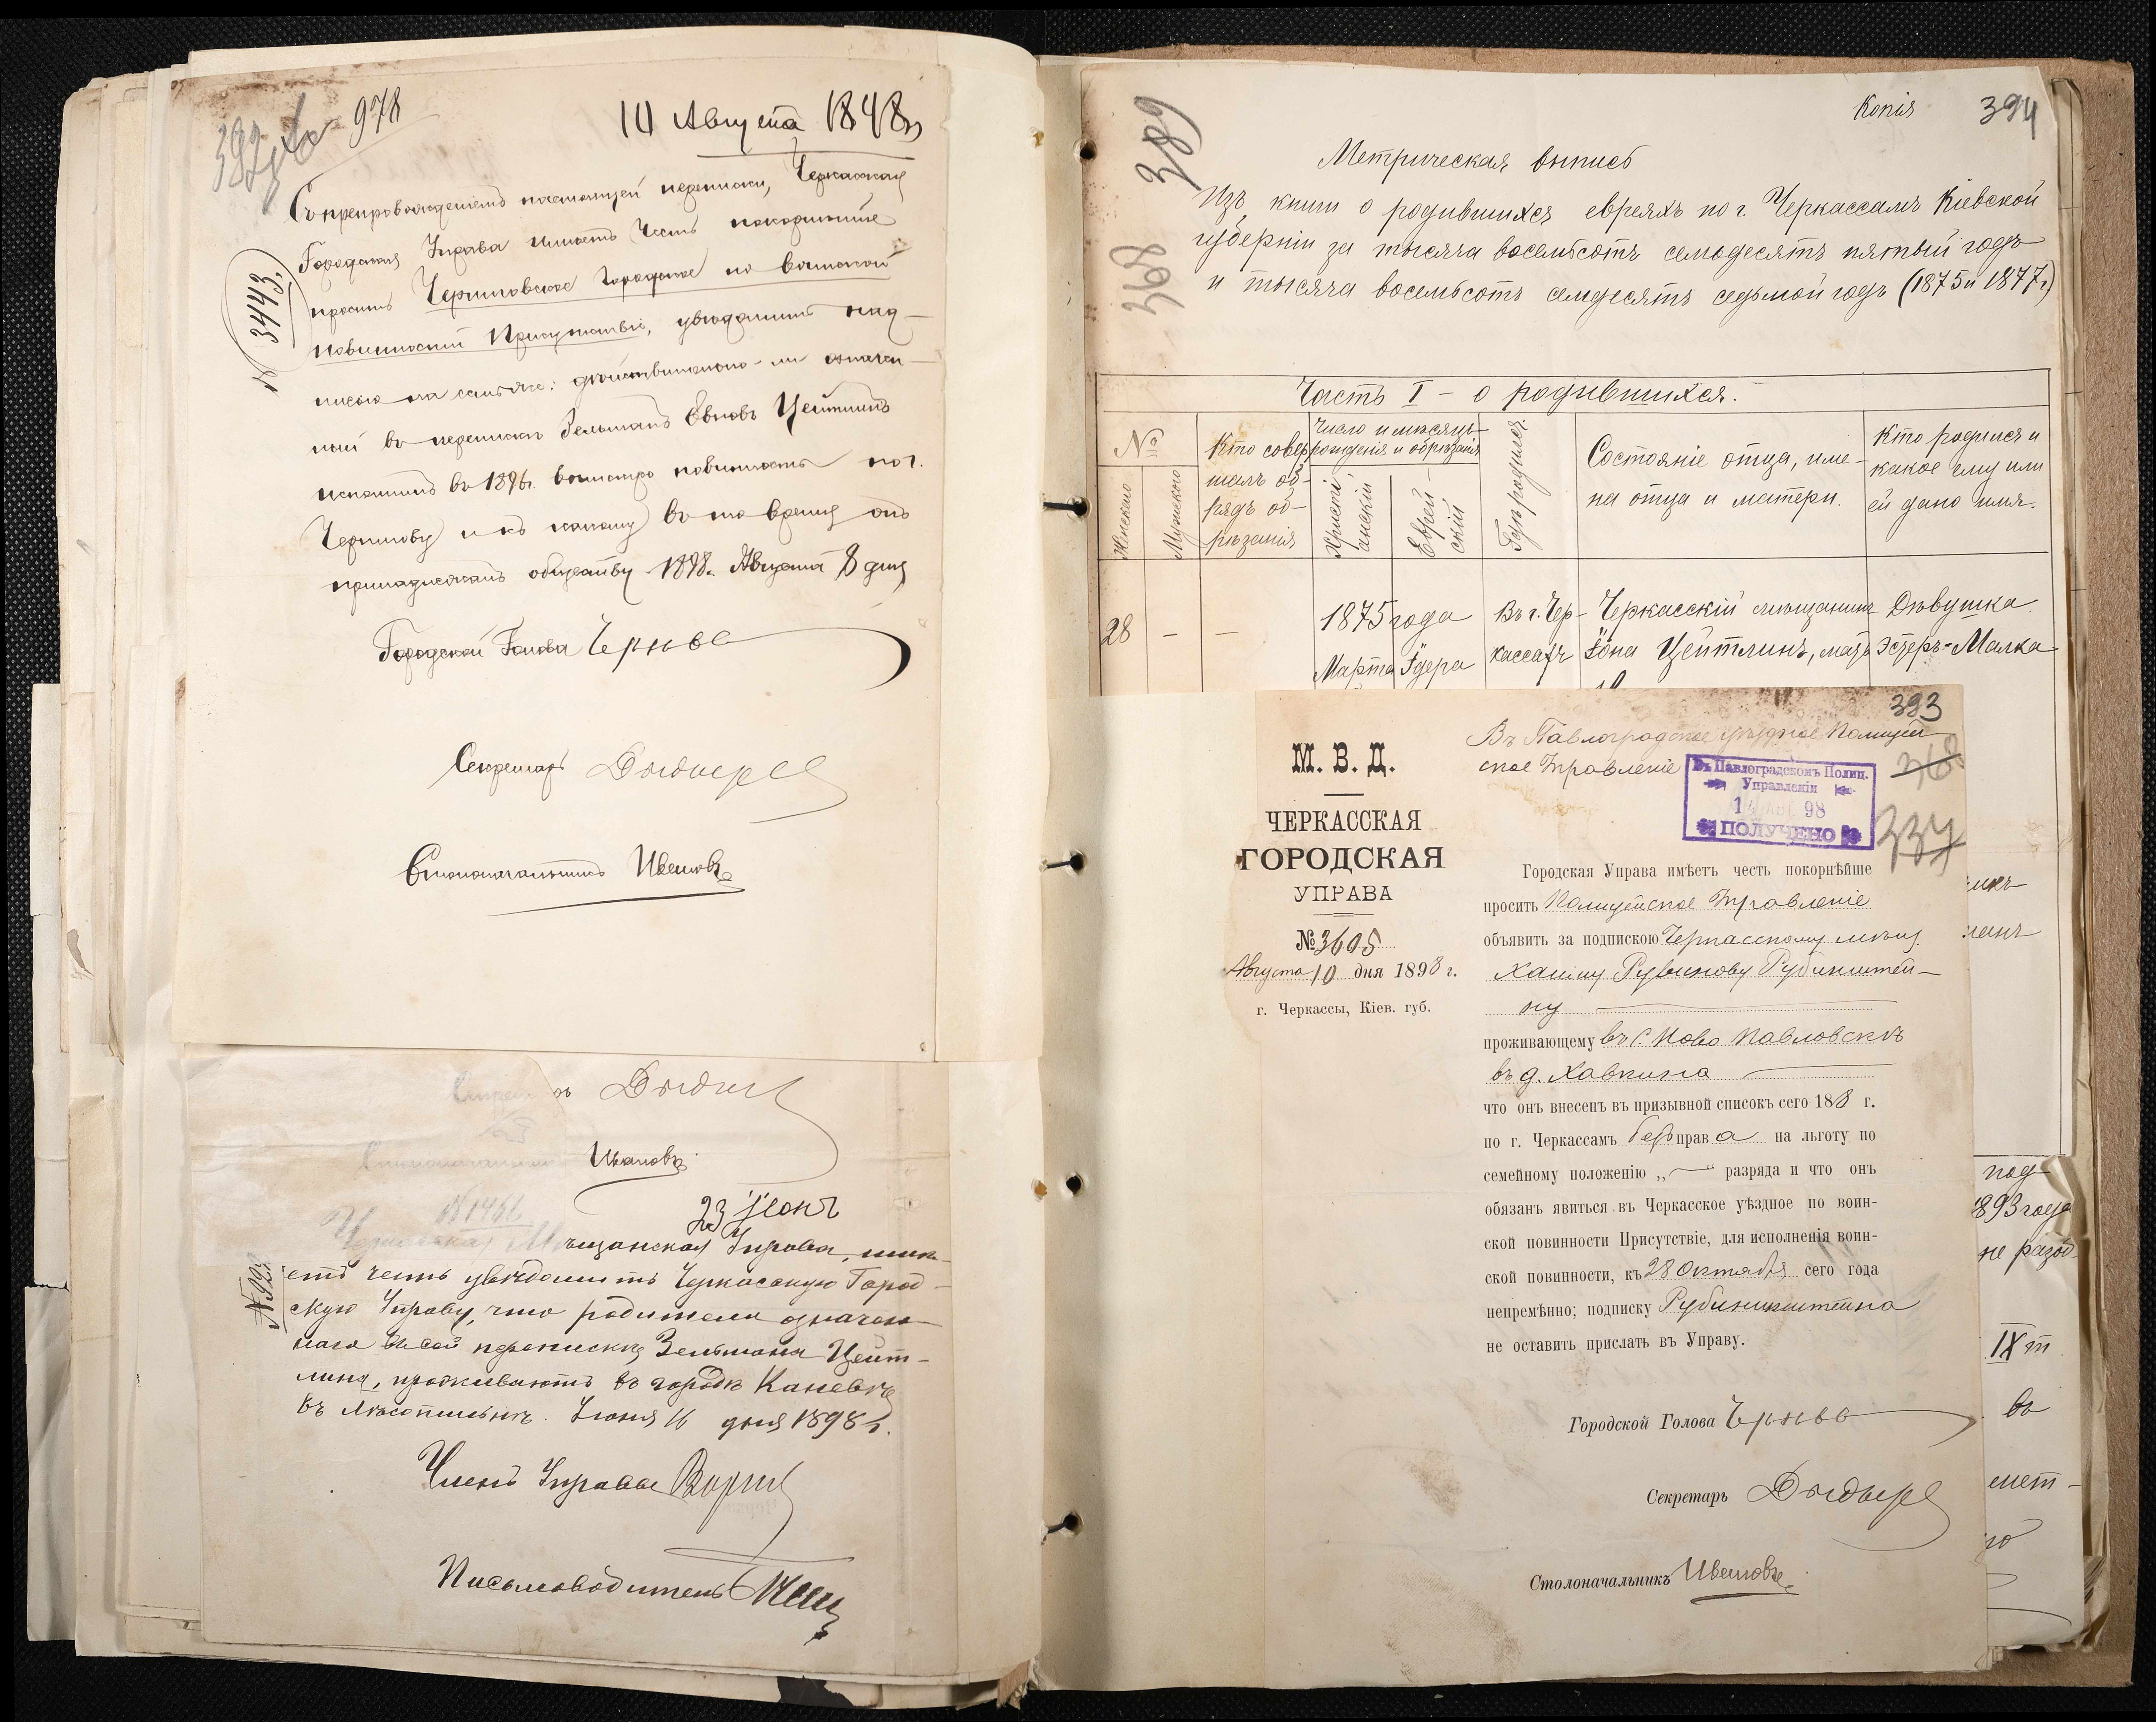 978
10 Августа 1898 г
392
Съ препровожденіемъ настоящей переписки, Черкасская
Городская Управа имѣетъ честь покорнѣйше
проситъ Черниговское Городское по воинской
повинности Присутствіе, увѣдомить над-
писью на семъ же: дѣйствительно-ли означен-
ный въ перепискѣ Зельманъ Евновъ Цейтлинъ
исполнилъ въ 1896 г. воинскую повинность по г.
Чернигову и къ какому въ то время онъ
принадлежалъ обществу 1898 г. Августа 8 дня
№ 3443
Городской Голова
Секретарь
Столоначальникъ Ивановъ
Ивановъ
№ 1466
23 Іюнь
Мѣщанская Управа, имѣ-
етъ честь увѣдомить Черкасскую Город-
скую Управу, что родители означен-
наго въ сей перепискѣ, Зельмана Цейт-
лина, проживаютъ въ городѣ Каневѣ
въ лѣсопильнѣ. Іюня 16 дня 1898 г.
№ 992
Членъ Управы
Письмоводитель
389
368
Копія
394
Метрическая выпись
Изъ книги о родившихся евреяхъ по г. Черкассамъ Кіевской
губерніи за тысяча восемьсотъ семьдесятъ пятый годъ
и тысяча восемьсотъ семдесятъ седьмой годъ (1875 и 1877 г.)
Часть I – о родившихся.
№
Женскаго
Мужескаго
Кто совер-
шалъ об-
рядъ об-
рѣзанія
Число и мѣсяцъ
рожденія и обрѣзанія
Христі-
анскій
Еврей-
скій
Гдѣ родился
Состояніе отца, име-
на отца и матери.
Кто родился и
какое ему или
ей дано имя.
28 – –
1875 года
Марта Адера
Въ г. Чер-
кассахъ
Черкасскій мѣщанинъ
Іона Цейтлинъ, мать
Дѣвушка
Эстеръ-Малка
393
368
337
Въ Павлоградское уѣздное Полицей-
ское Управленіе
Въ Павлоградскомъ Полиц.
Управленіи
14 АВГ. 98
ПОЛУЧЕНО
М. В. Д.
ЧЕРКАССКАЯ
ГОРОДСКАЯ
УПРАВА
№ 3605
Августа 10 дня 1898 г.
г. Черкассы, Кіев. губ.
Городская Управа имѣетъ честь покорнѣйше
проситъ Полицейское Управленіе
объявить за подпискою Черкасскому мѣщ.
Хаиму Рувинову Рубинштей-
ну
проживающему въ с. Ново Павловскѣ
въ д. Хавкина
что онъ внесенъ въ призывной списокъ сего 1898 г.
по г. Черкассамъ безъ права на льготу по
семейному положенію „—“ разряда и что онъ
обязанъ явиться въ Черкасское уѣздное по воин-
ской повинности Присутствіе, для исполненія воин-
ской повинности, къ 28 Октября сего года
непремѣнно; подписку Рубинштейна
не оставить прислать въ Управу.
Городской Голова
Секретарь
Столоначальникъ Ивановъ
под-
1893 года
не разоб-
IX т
во
мет-